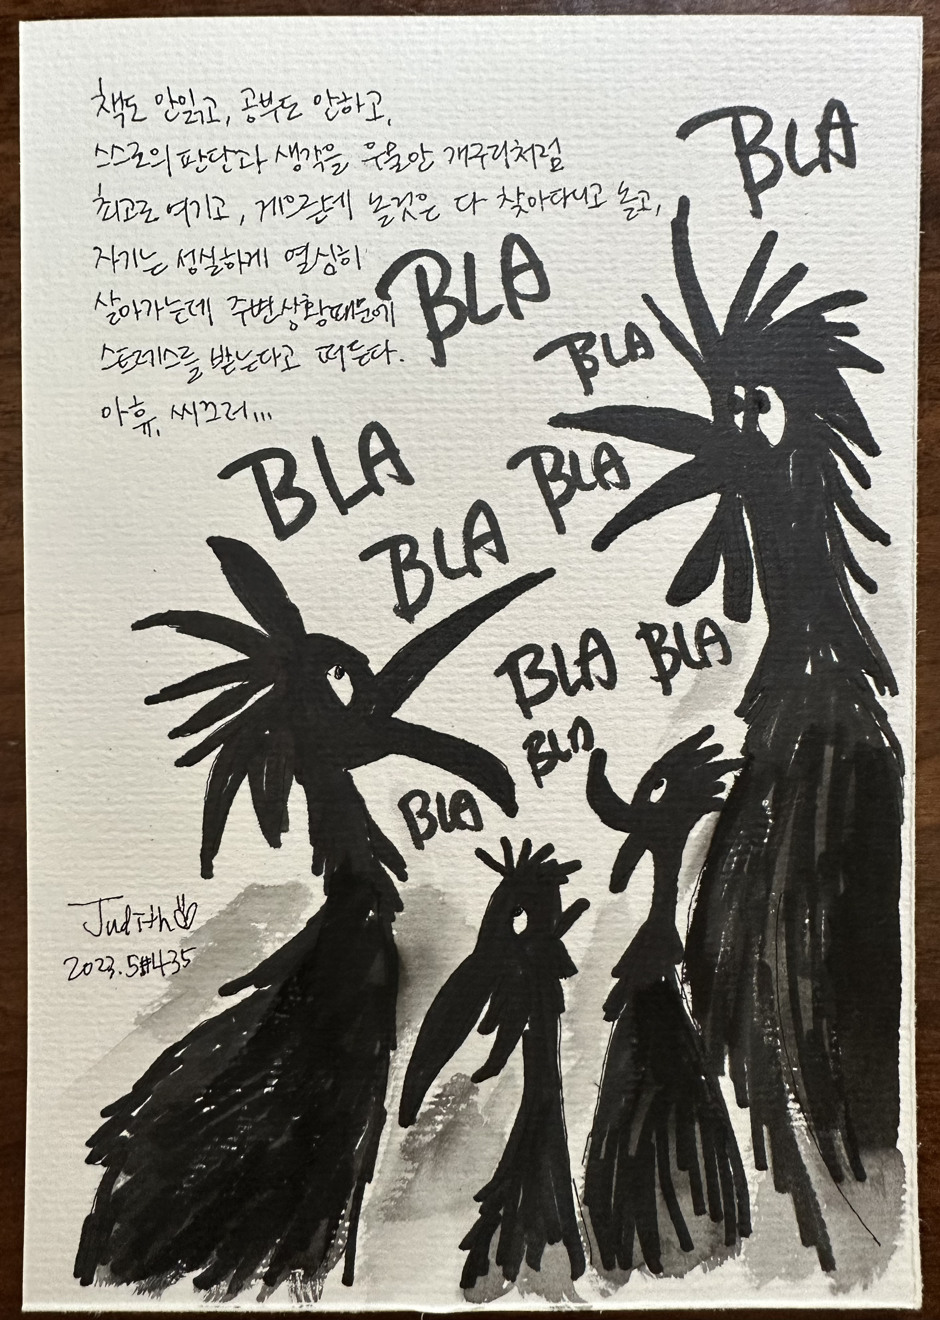 책도 안읽고, 공부도 안하고,
스스로의 판단과 생각을 우물안 개구리처럼
최고로 여기고, 게으른데 놀것은 다 찾아다니고 놀고,
자기는 성실하게 열심히
살아가는데 주변상황때문에
스트레스를 받는다고 떠든다.
아휴, 씨끄러...
BLA
BLA
BLA
BLA
BLA
BLA
BLA BLA
BLA
BLA
Judith
2023.5#435